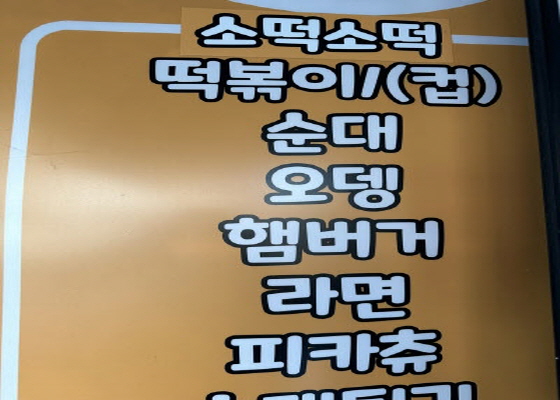 소떡소떡
떡볶이/(컵)
순대
오뎅
햄버거
라면
피카츄